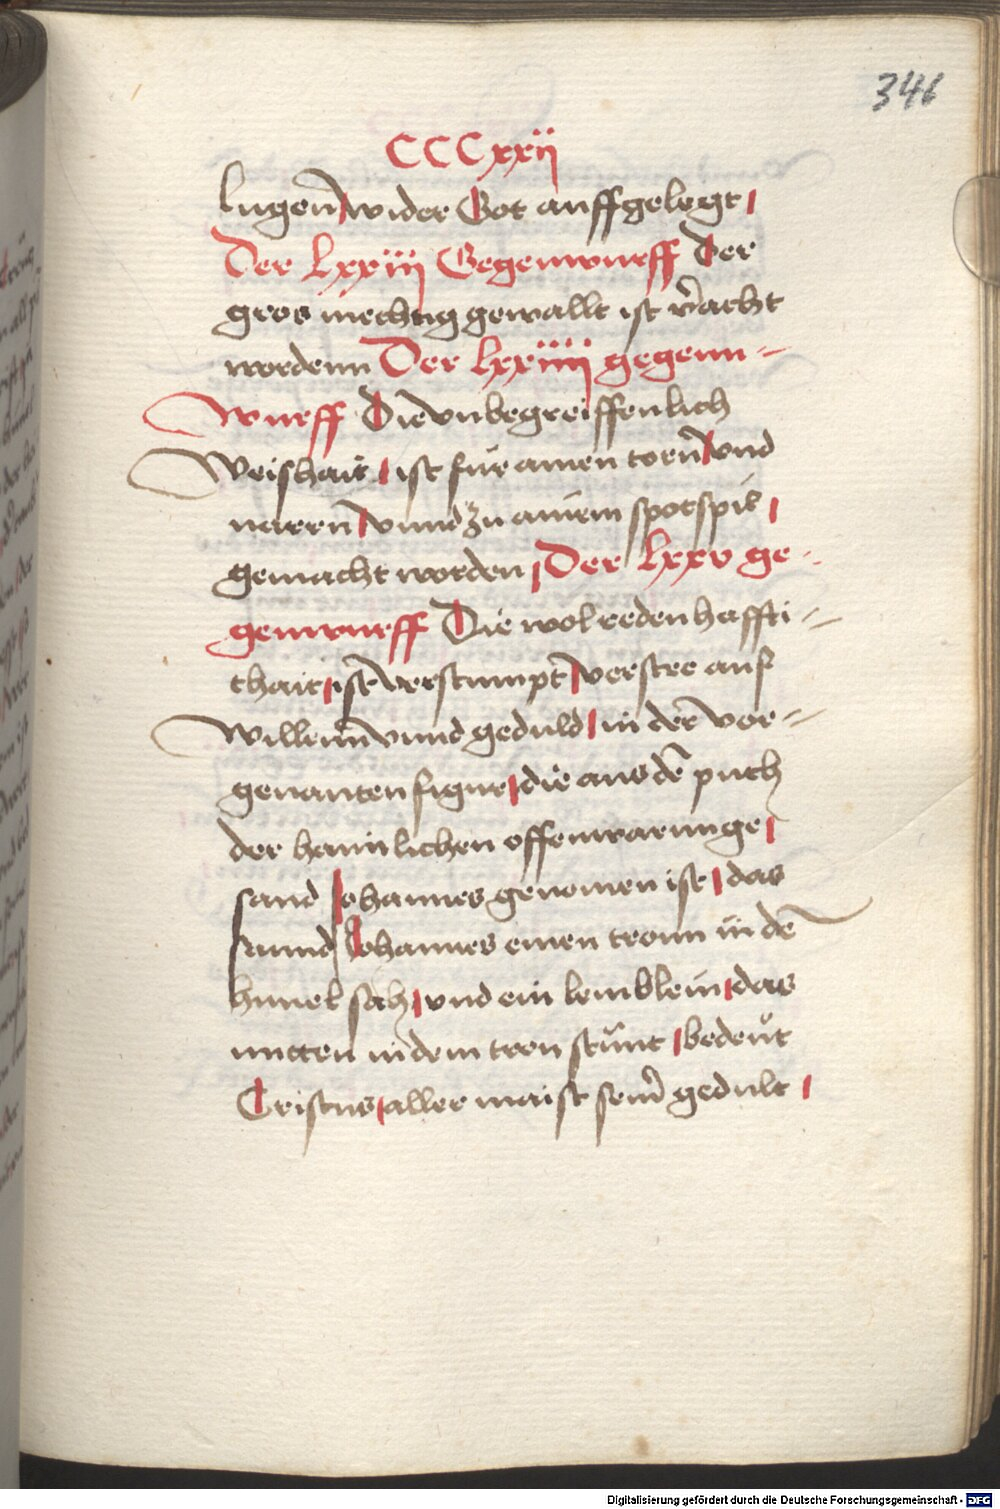 346
CCCxxii
lugen̄ wider Got auffgelegt
Der lxxiii Gegenwurff Der
gros mechtig gewallt ist v̄acht
wordenn Der lxxiiii gegenn-
wurff Die vnbegreiffenlich
Weishait ist fur ainen torn̄ vnd
narrn̄ vnnd zu ainem spotspil
gemacht worden Der lxxv ge-
genwurff Die wolredenhaffti-
thait ist verstumpt̄ verstee auf
willenn̄ vnnd geduld in der vor-
genanten figur die aus dē puch
der haimlichen offenwarunge
sand Johannes genomen ist das
sannd Johannes einen tronn in dē
himel sach vnd ein lemblein das
mitten in dem tron stůnt bedeut
Cristus aller maist sein̄ gedult
Digitalisierung gefördert durch die Deutsche Forschungsgemeinschaft - DFG